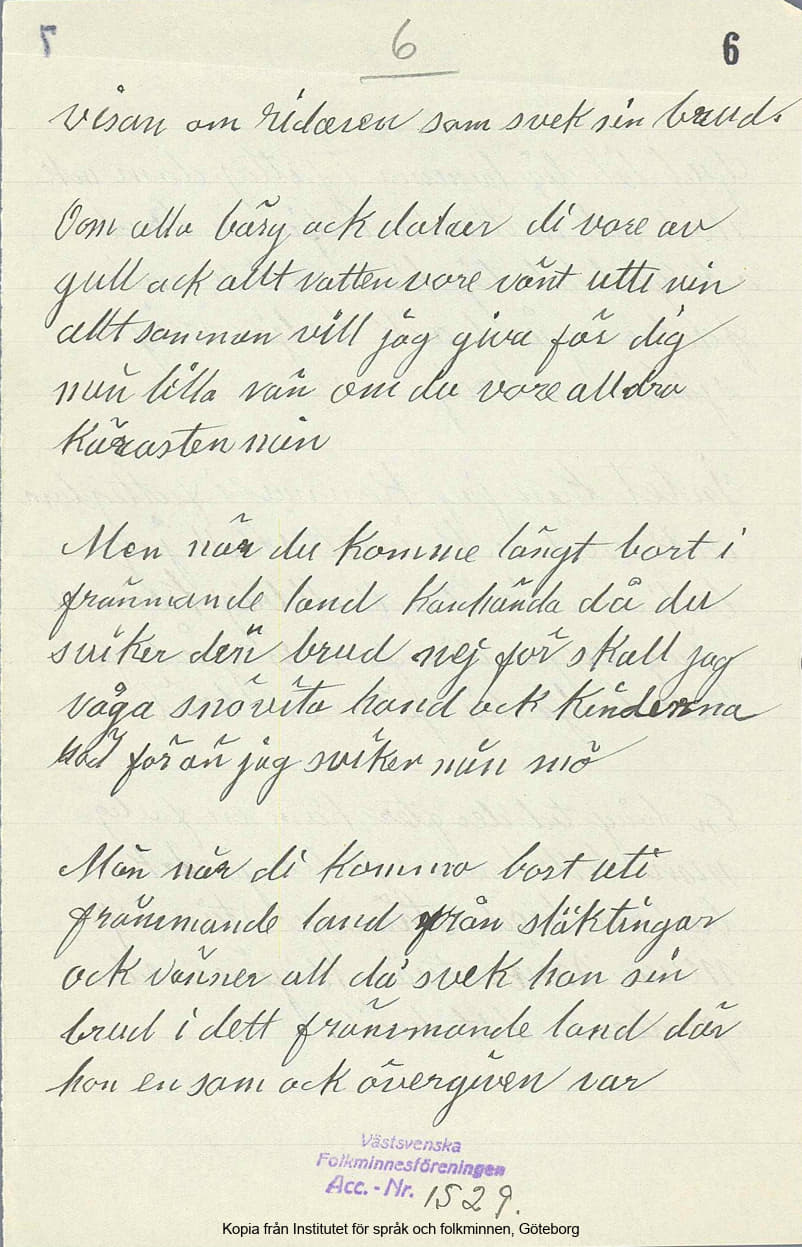 6 6
visan om ridaren som svek sin brud.
Om alla bärg ock dalaer di vore av
gull ock allt vatten vore vänt utti vin
allt samman vill jag giva för dig
min lilla vän om du vore alldra
Kärasten min
Men när du komme långt bort i
främmande land Kanhända då du
sviker din brud nej för skall jag
våga snövita hand ock kinderna
för än jag sviker min mö
Män när di Komma bort uti
främmande land från släktingar
ock vänner all då svek han sin
brud i dett främmande land där
hon ensam ock övergiven var
Västsvenska
Folkminnesföreningen
Acc. - Nr. 1529.
Kopia från Institutet för språk och folkminnen, Göteborg